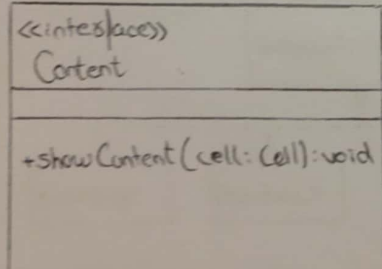 <<interface>>
Content
+showContent(cell: Cell): void